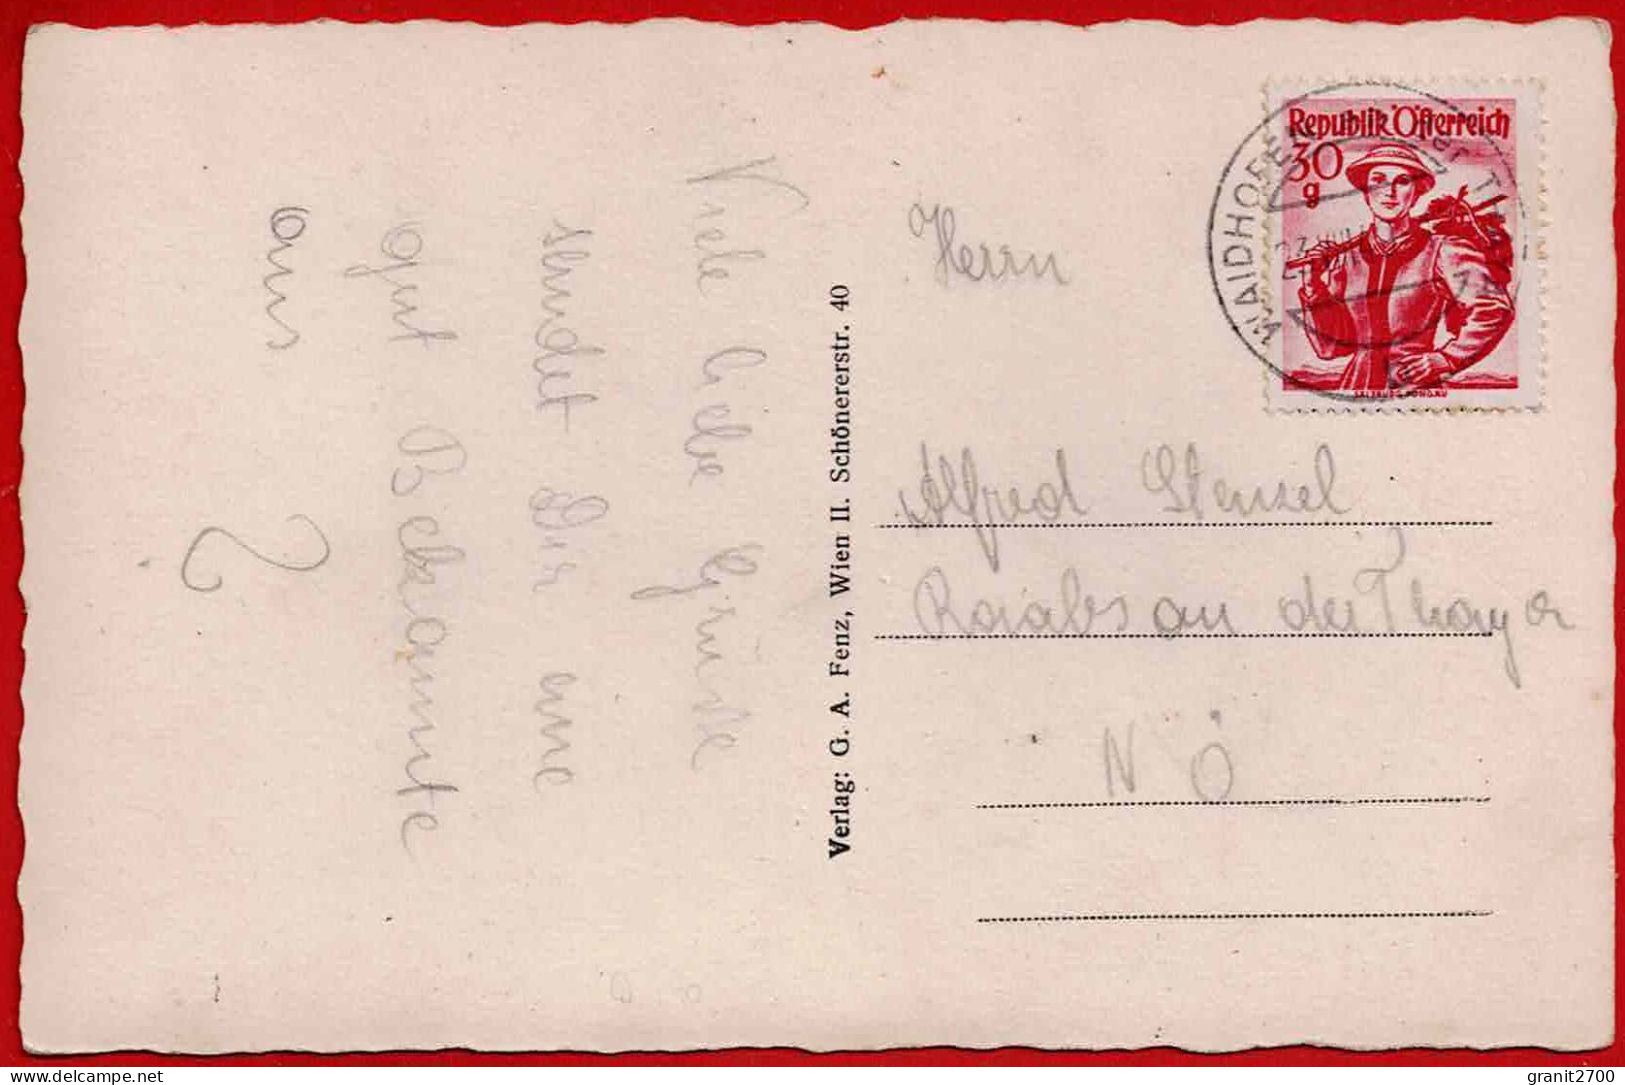 Viele liebe Grüsse
sendet Dir eine
gut Bekannte
aus
?
Verlag: G. A. Fenz, Wien II. Schönererstr. 40
Republik Österreich
30
g
SALZBURG, PONGAU
WAIDHOFEN
Herrn
Alfred Stenzel
Raabs an der Thaya
N Ö
delcampe.net
granit2700